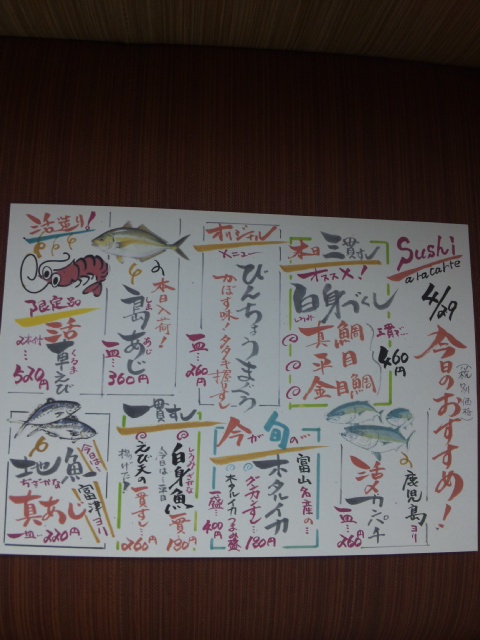 Sushi
a racarte
4/29
今日のおすすめ！
(税別価格)
本日三貫すし
オススメ！
白身づくし
真鯛
真平目
金目鯛
三貫で…
460円
オリジナル
メニュー
びんちょうまぐろ
かぼす味！タタキ握すし
一皿…260円
本日入荷！
の
島あじ
しま
一皿…360円
活造り！
限定品
活
車えび
くるま
2本付…
520円
鹿児島ヨリ
の
活〆カンパチ
一皿…260円
今が旬の
富山名産の…
ホタルイカ
グンカンすし…180円
ホタルイカつまみ盛
一盛…400円
一貫すし
白身魚一貫
今日は…平目
180円
えび天の一貫すし…
揚げたて！
260円
今日は…
富津ヨリ
地魚
ぢざかな
真あじ
一皿…220円